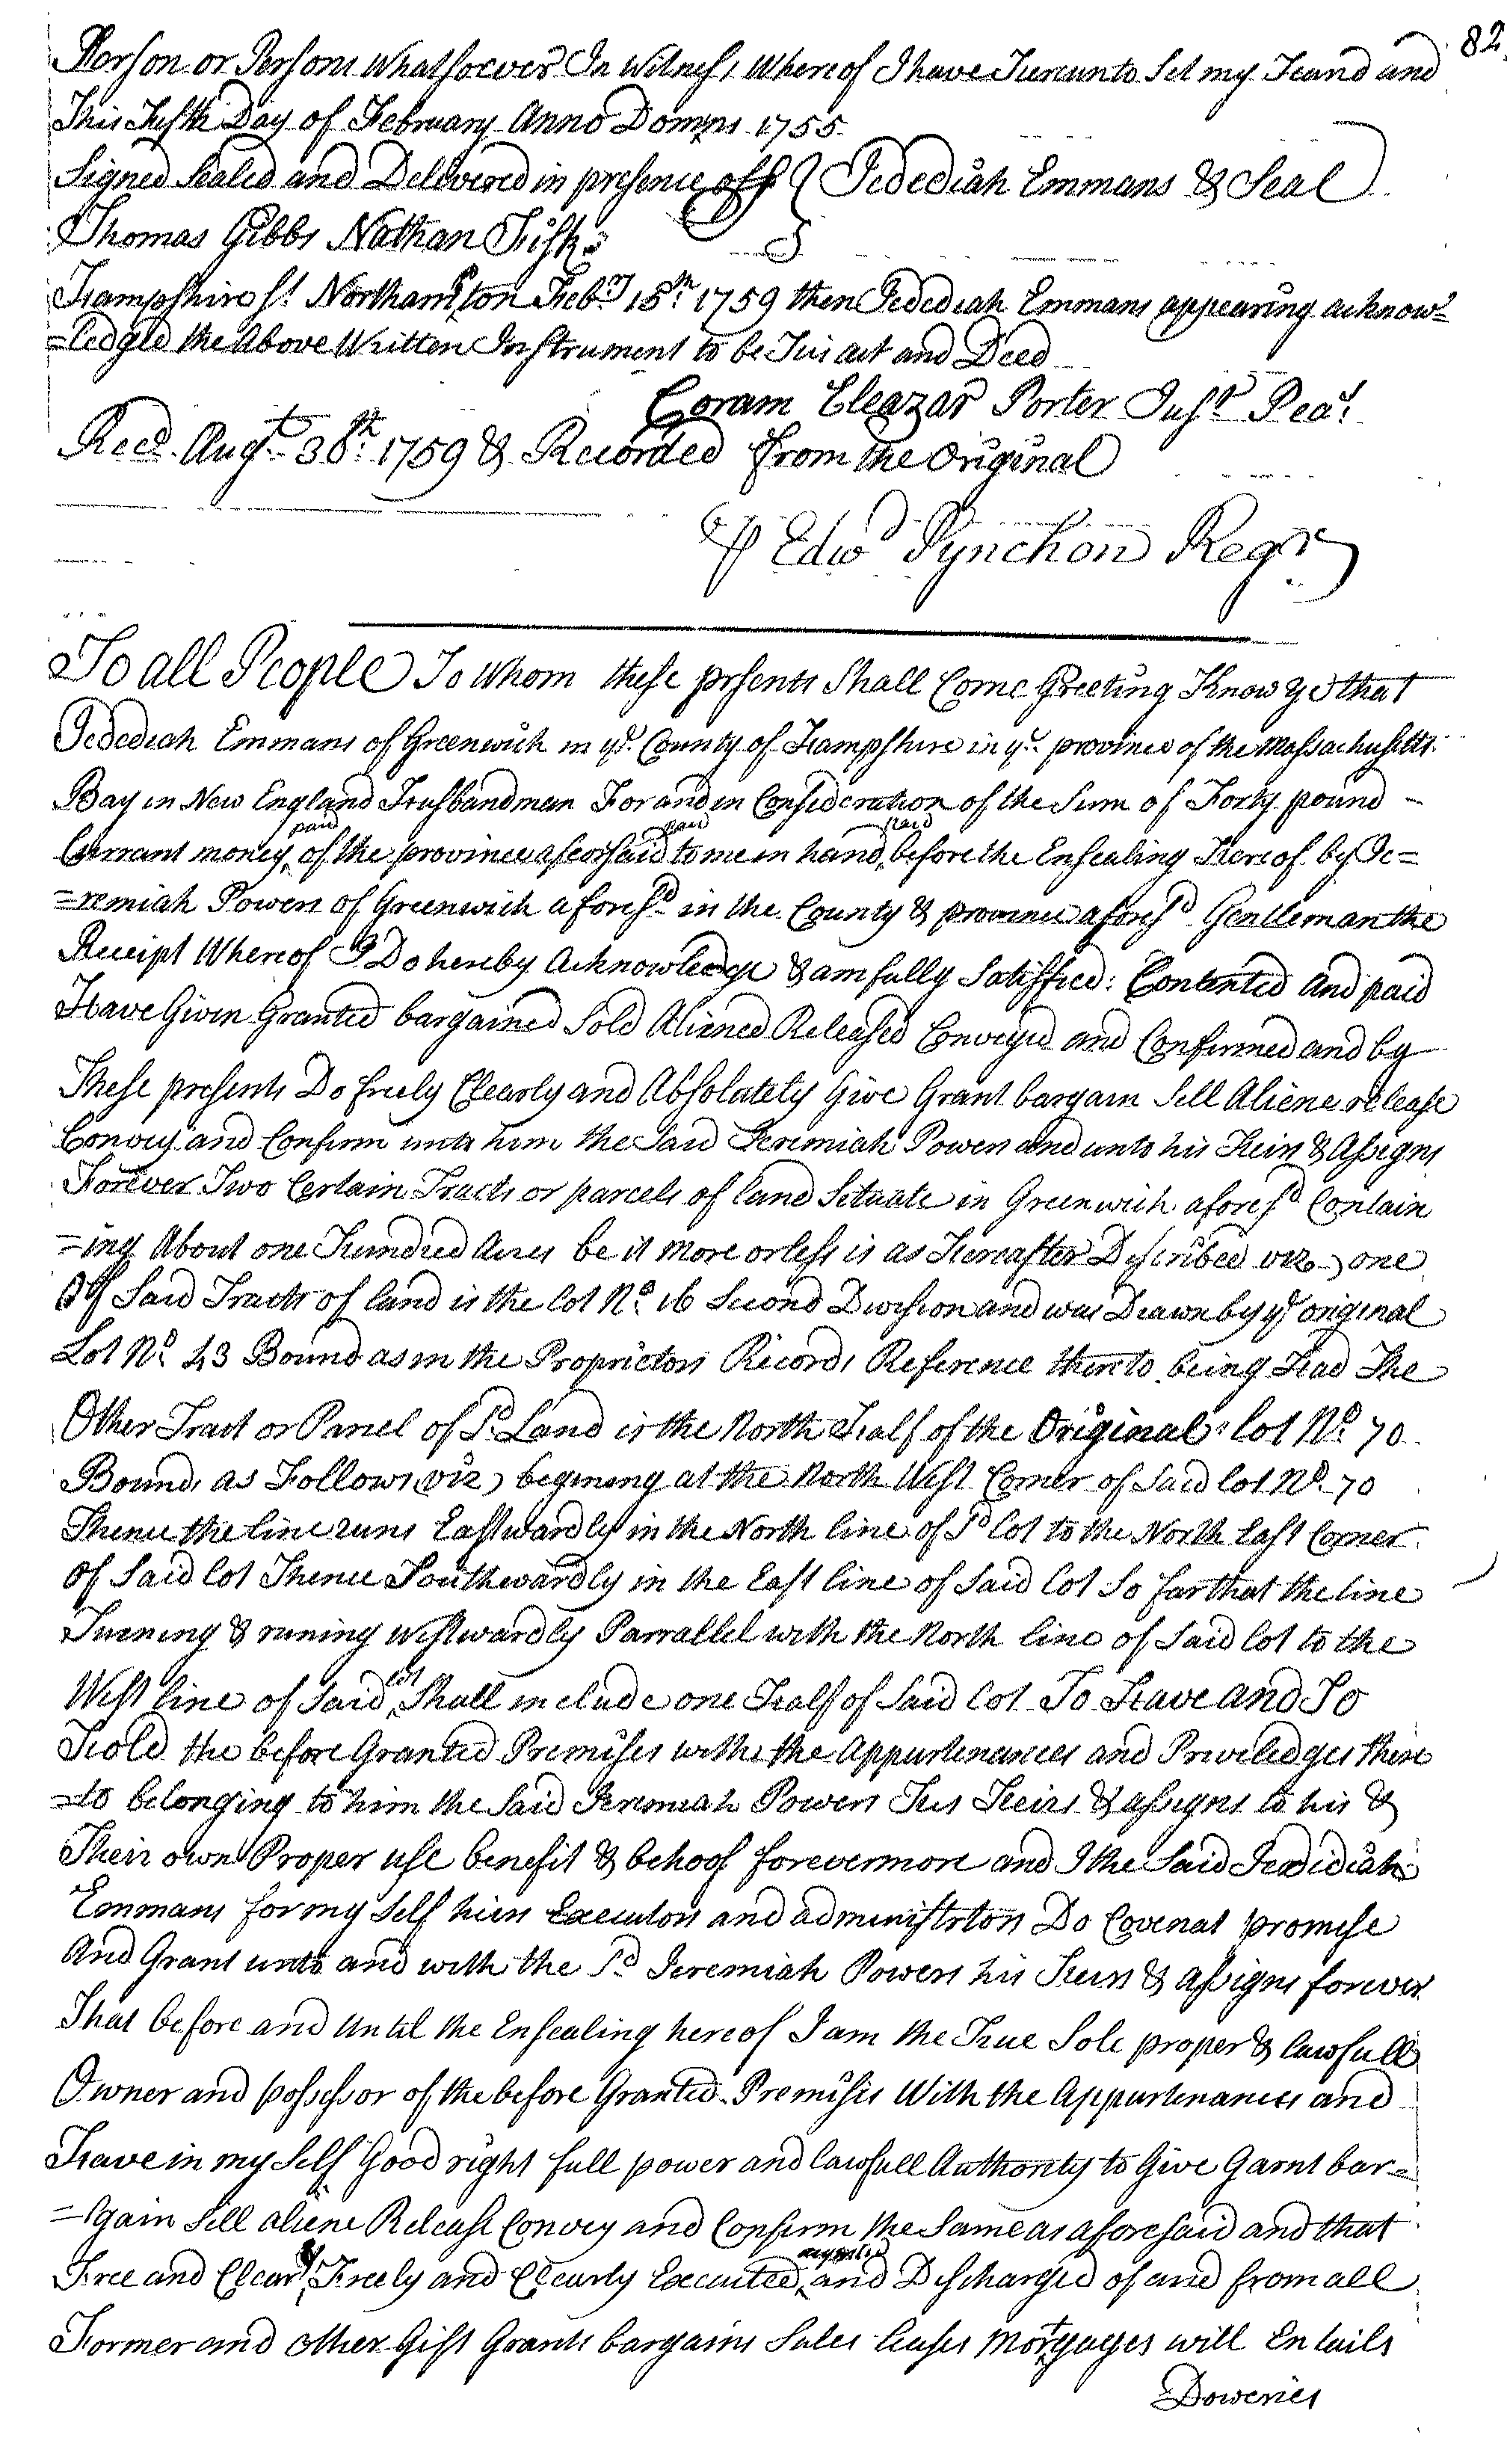 82.
Person or Persons Whatsoever In Witness Whereof I have Hereunto Set my Hand and
This Fifth Day of February Anno Domini 1755
Signed Sealed and Delivered in presence off Jedediah Emmans & Seal
Thomas Gibbs Nathan Fisk
Hampshire Ss. Northampton Feby 15th 1759 then Jedediah Emmans appearing acknow=
=ledged the Above Written Instrument to be His act and Deed
Coram Eleazar Porter Just Peas
Recd. Augt 30th 1759 & Recorded from the Original
P Edwd Pynchon Regr
To all People To Whom these prsents Shall Come Greeting Know ye that
Jedediah Emmans of Greenwich in ye County of Hampshire in ye province of the Massachusetts
Bay in New England Husbandman For and in Consideration of the Sum of Forty pound
Currant money of the province aforesaid to me in hand paid before the Ensealing Hereof by Je=
=remiah Powers of Greenwich aforesd in the County & province aforesd Gentleman the
Receipt Whereof I Do hereby Acknowledge & am fully Satisfied: Contented And paid
Have Given Granted bargained Sold Aliened Released Conveyed and Confirmed and by
These presents Do freely Clearly and Absolutely Give Grant bargain Sell Aliene release
Convey and Confirm unto him the Said Jeremiah Powers and unto his Heirs & Assigns
Forever Two Certain Tracts or parcels of land Situate in Greenwich aforesd Contain
=ing About one Hundred Acres be it more or less is as Hereafter Described viz one
Off Said Tracts of land is the lot No. 16 Second Division and was Drawn by ye original
Lot No. 43 Bound as in the Proprietors Records Reference thereto being Had The
Other Tract or Parcel of Sd Land is the North Half of the Original lot No. 70
Bounds as Follows (viz) begining at the North West Corner of Said lot No. 70
Thence the line runs Eastwardly in the North line of Sd lot to the North East Corner
of Said lot Thence Southwardly in the East line of Said lot So far that the line
Turning & runing westwardly Parrallel with the North line of Said lot to the
West line of Said lot Shall include one Half of Said lot To Have and To
Hold the before Granted Premises with the Appurtenances and Priviledges there
=to belonging to him the Said Jeremiah Powers His Heirs & assigns to his &
Their own Proper use benefit & behoof forevermore and I the Said Jedidiah
Emmans for my Self heirs Executors and administrtors Do Covenat promise
And Grant unto and with the Sd Jeremiah Powers his Heirs & assigns forever
That before and Until the Ensealing hereof I am the True Sole proper & lawfull
Owner and possessor of the before Granted Premisis With the Appurtenances and
Have in my Self Good right full power and lawfull Authority to Give Garnt bar=
=gain Sell aliene Release Convey and Confirm the Same as aforesaid and that
Free and Clear & Freely and Clearly Executed acquitted and Discharged of and from all
Former and other Gift Grants bargains Sales leases Mortgages will Entails
Doweries